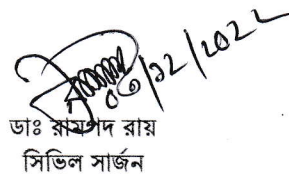 ০৩/১২/২০২২
ডাঃ রামপদ রায়
সিভিল সার্জন